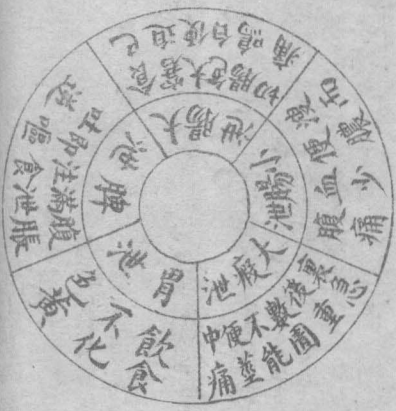 胃泄
飲食
不化
色黃
脾泄
腹脹
滿泄
注食
即嘔
吐逆
大腸泄
食已
窘迫
大便
色白
腸鳴
切痛
小腸泄
溲而
便膿
血少
腹痛
大瘕泄
裏急
後重
數圊
不能
便莖
中痛